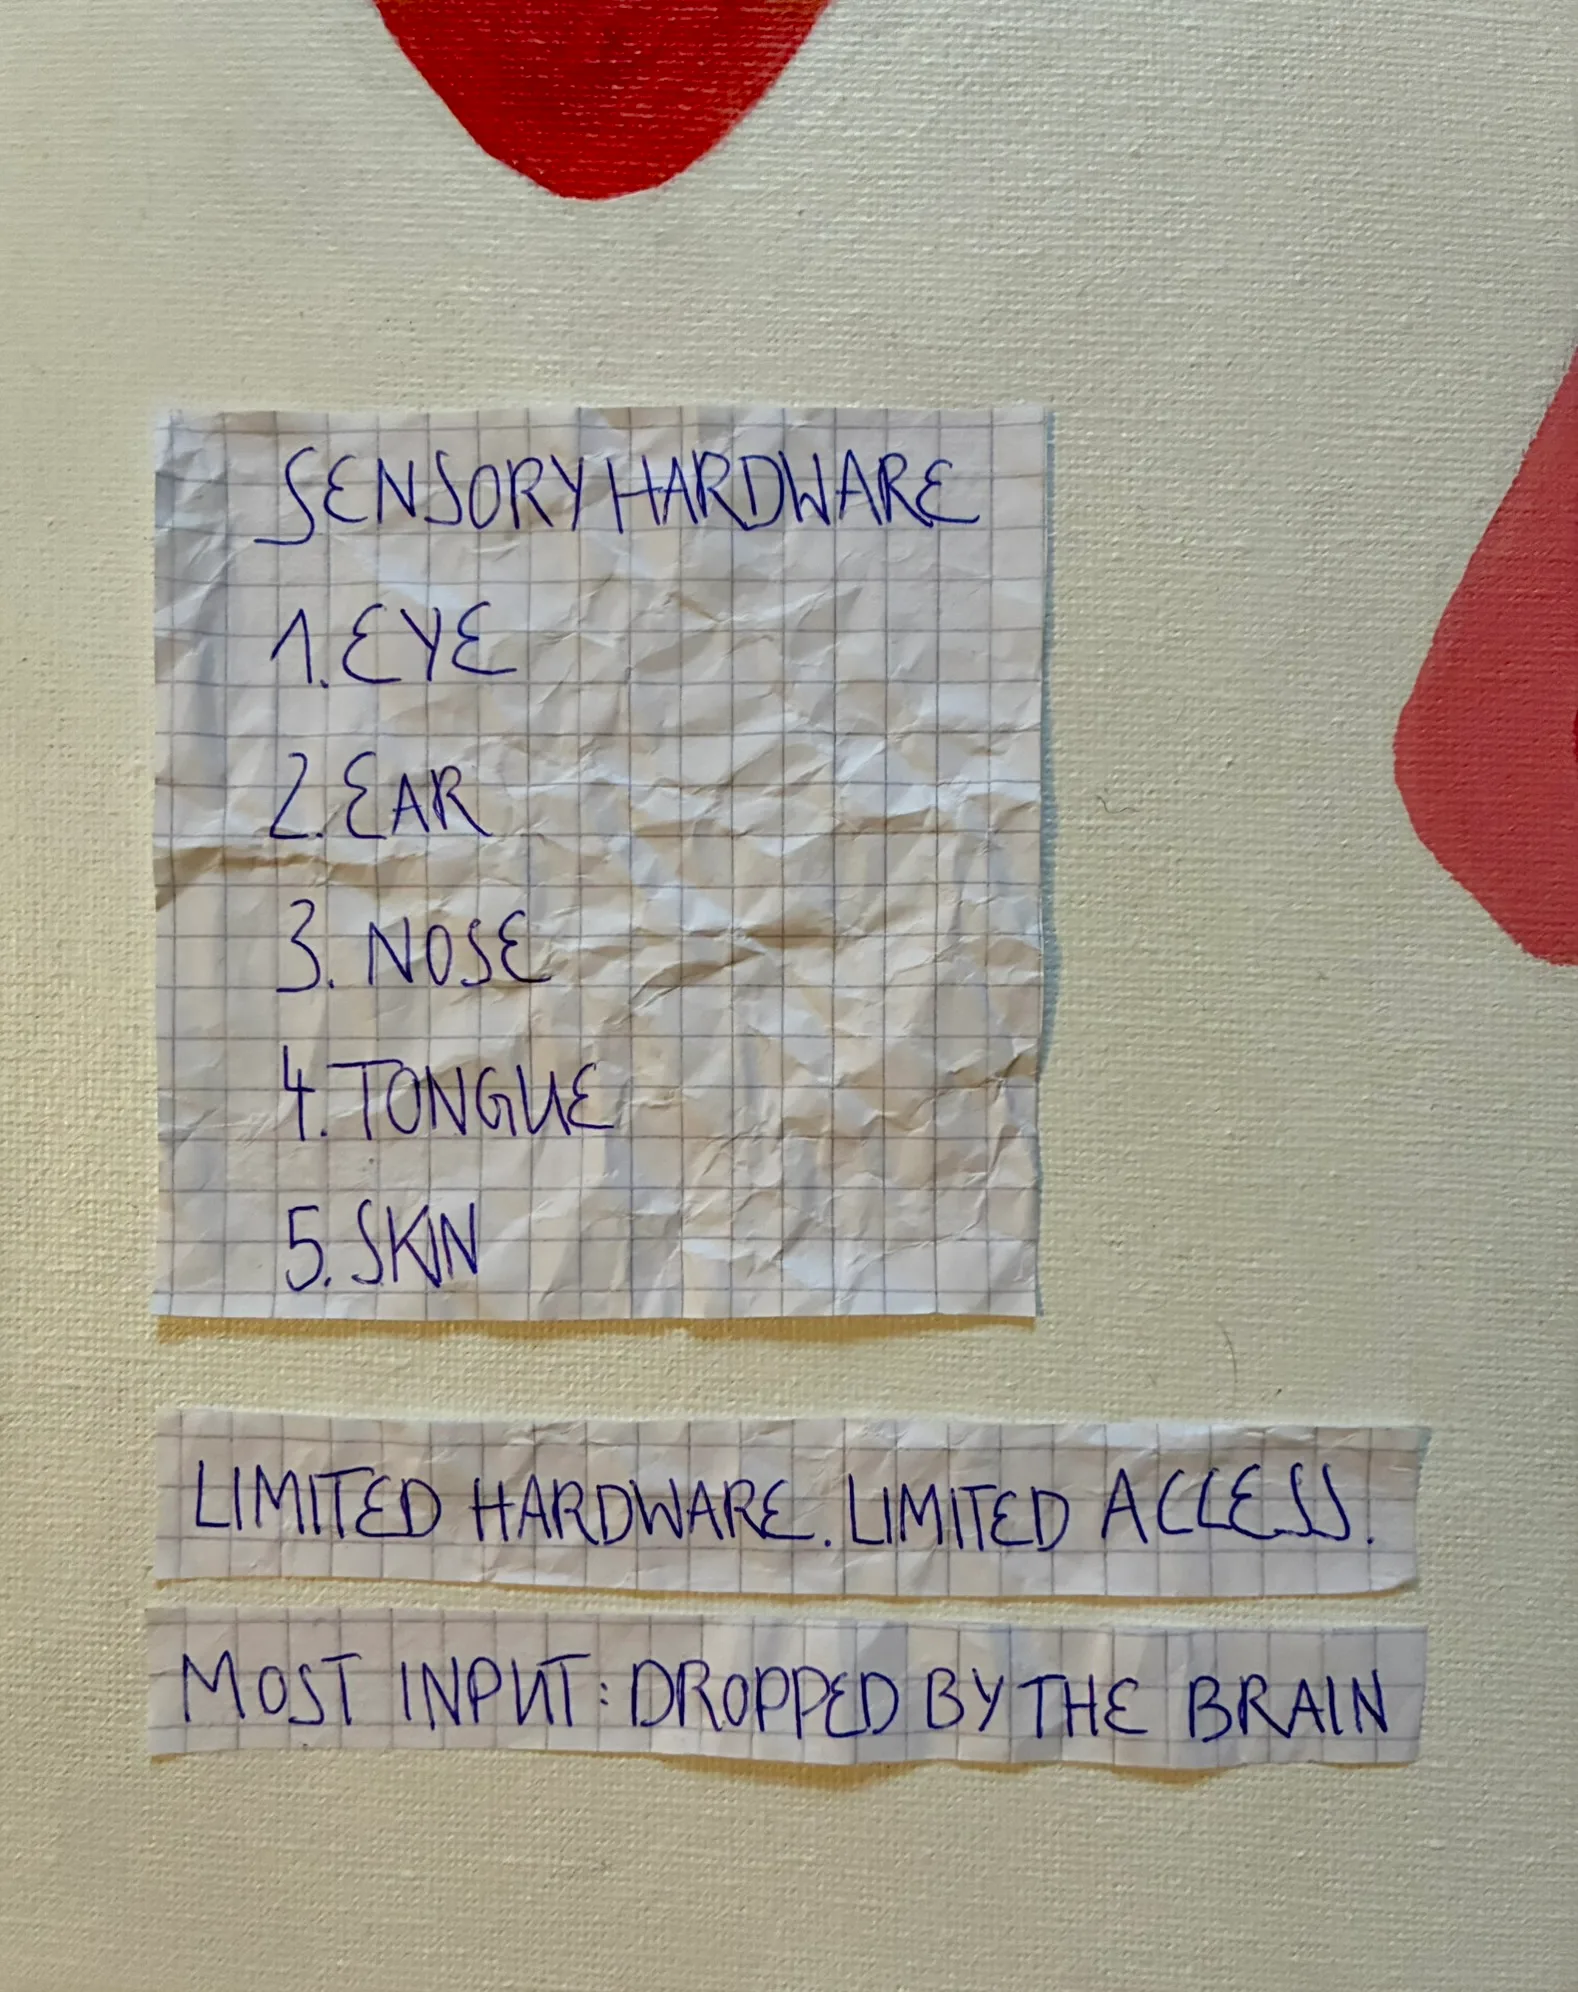 SENSORY HARDWARE
1. EYE
2. EAR
3. NOSE
4. TONGUE
5. SKIN
LIMITED HARDWARE. LIMITED ACCESS.
MOST INPUT: DROPPED BY THE BRAIN